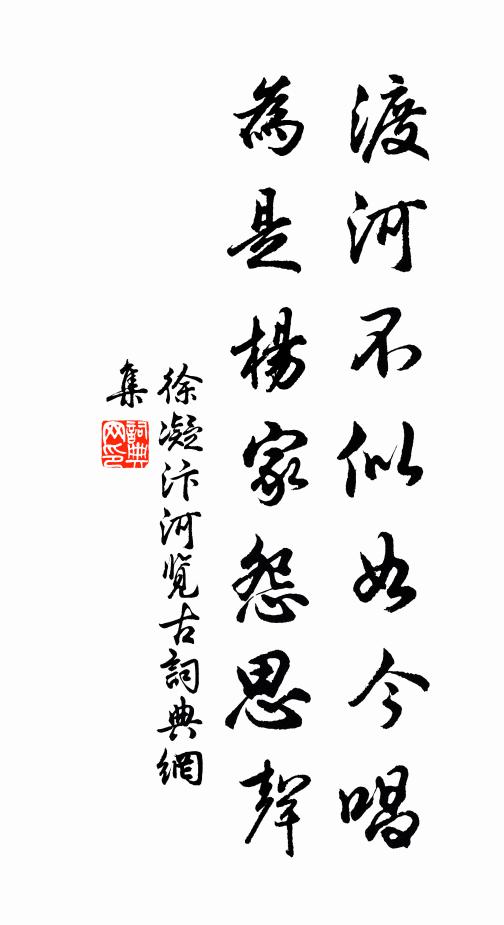 渡河不似如今唱
為是楊家怨思聲
徐凝汴河览古詞典網
集
詞典
网印